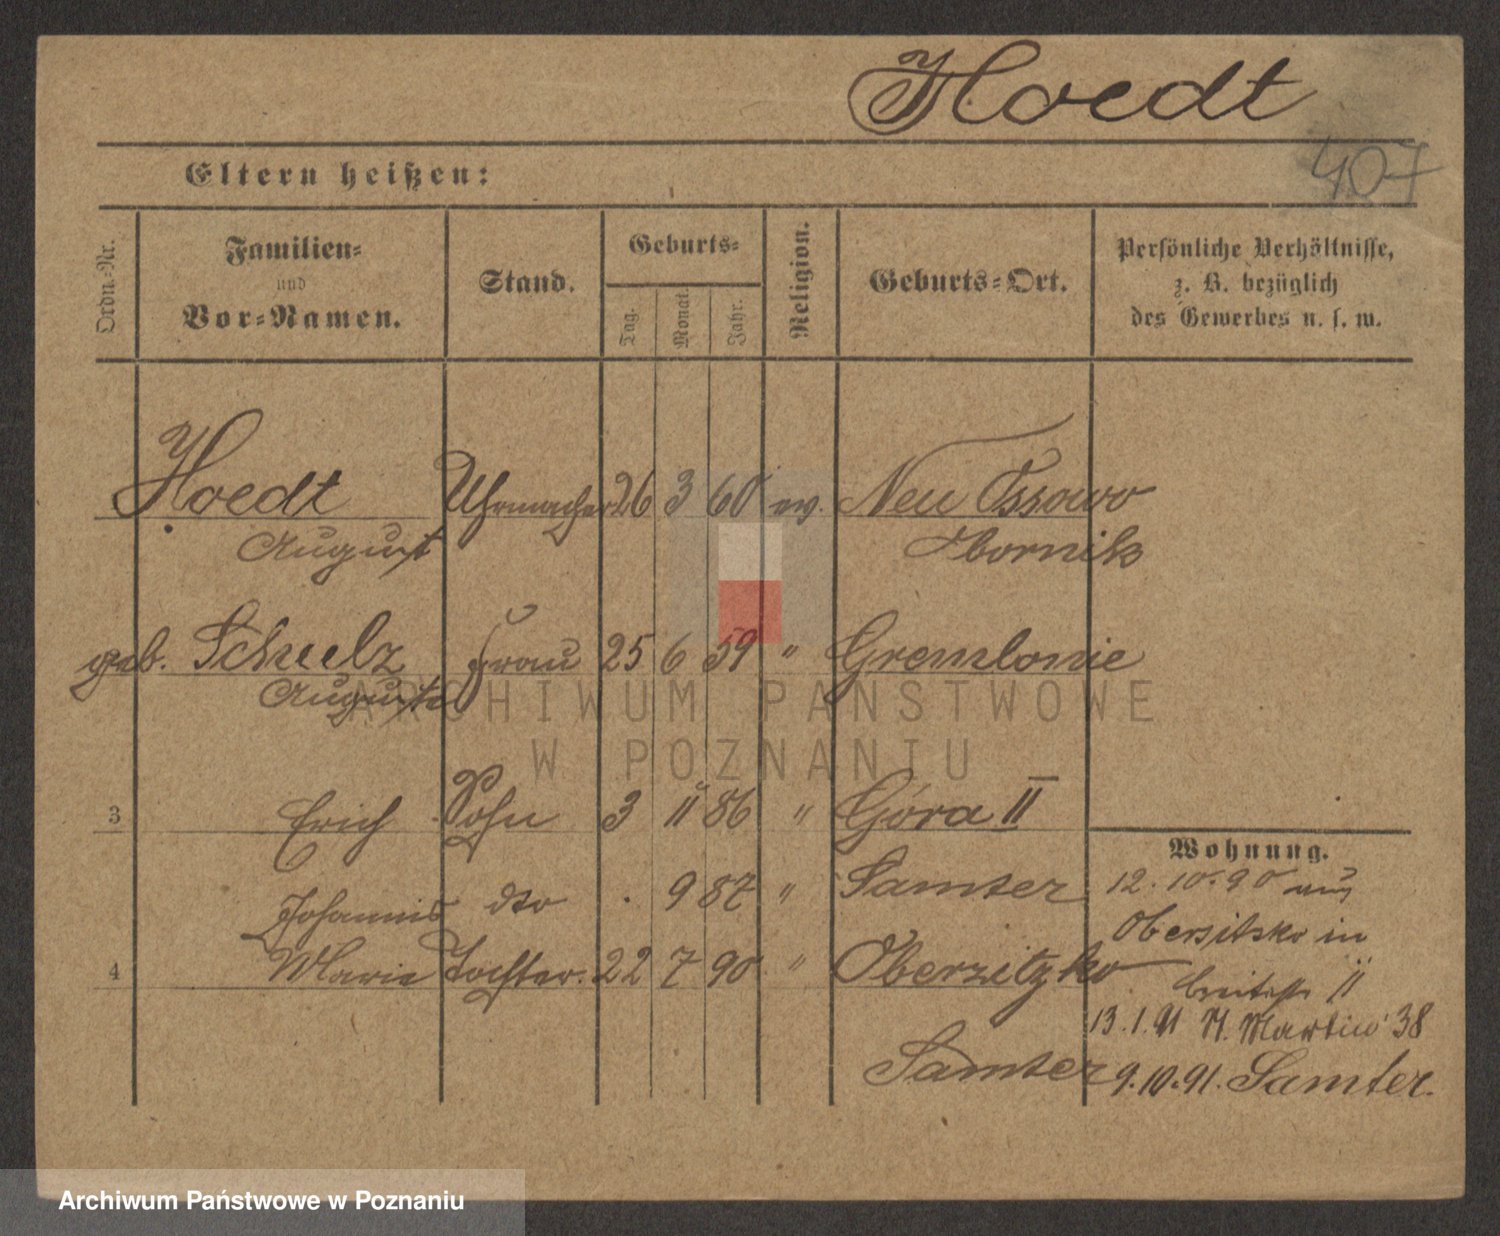 Hoedt
407
Eltern heißen:
Ordn.-Nr.
Familien-
und
Vor-Namen.
Stand.
Geburts-
Tag.
Monat.
Jahr.
Religion.
Geburts-Ort.
Persönliche Verhältnisse,
z. B. bezüglich
des Gewerbes u. s. w.
Hoedt Uhrmacher 26 3 60 ev. Neu Ossowo
August Obornik
geb. Schulz Frau 25 6 59 " Gremlonie
Auguste
3 Erich Sohn 3 11 86 " Góra II
Wohnung.
Johannis dto . 9 87 " Samter 12.10.90 aus
Obersitzko in
4 Marie Tochter. 22 7 90 " Oberzitzko
Breitestr 11
13.1.91 St. Martin 38
Samter 9.10.91. Samter.
ARCHIWUM PAŃSTWOWE
W POZNANIU
Archiwum Państwowe w Poznaniu